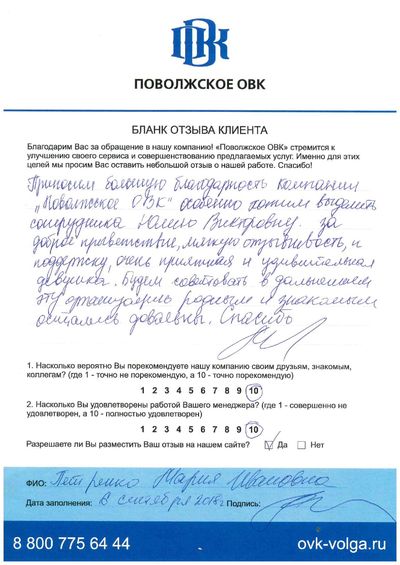 ОВК
ПОВОЛЖСКОЕ ОВК
БЛАНК ОТЗЫВА КЛИЕНТА
Благодарим Вас за обращение в нашу компанию! «Поволжское ОВК» стремится к
улучшению своего сервиса и совершенствованию предлагаемых услуг. Именно для этих
целей мы просим Вас оставить небольшой отзыв о нашей работе. Спасибо!
Приносим большую благодарность компании
„Поволжское ОВК" особенно хотим выделить
сотрудника Юлию Викторовну. за
доброе приветствие, мягкую отзывчивость, и
поддержку, очень приятная и удивительная
девушка. Будем советовать в дальнейшем
эту организацию родным и знакомым
остались довольны. Спасибо
1. Насколько вероятно Вы порекомендуете нашу компанию своим друзьям, знакомым,
коллегам? (где 1 - точно не порекомендую, а 10 - точно порекомендую)
1 2 3 4 5 6 7 8 9 10
2. Насколько Вы удовлетворены работой Вашего менеджера? (где 1 - совершенно не
удовлетворен, а 10 - полностью удовлетворен)
1 2 3 4 5 6 7 8 9 10
Разрешаете ли Вы разместить Ваш отзыв на нашем сайте? Да Нет
ФИО: Петренко Мария Ивановна
Дата заполнения: сентября 2018г Подпись:
8 800 775 64 44 ovk-volga.ru